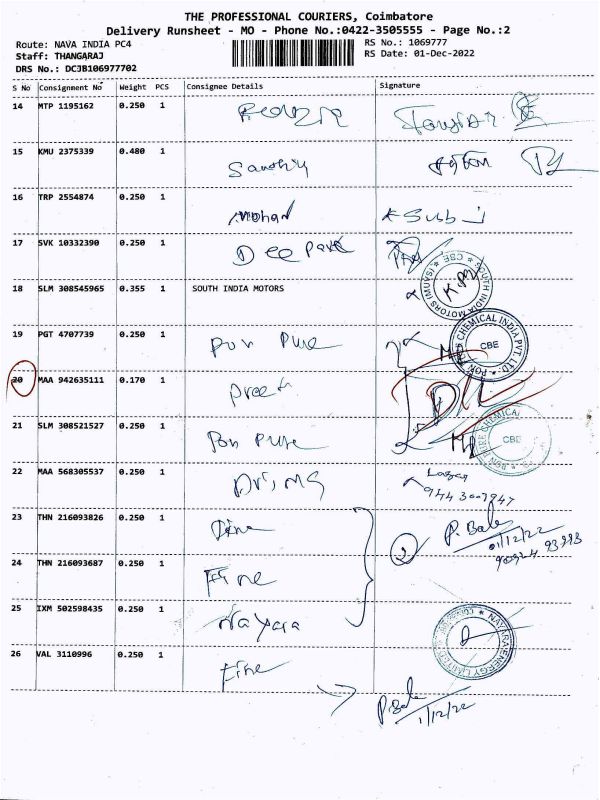 THE PROFESSIONAL COURIERS, Coimbatore
Delivery Runsheet - MO - Phone No.:0422-3505555 - Page No.:2
Route: NAVA INDIA PC4 RS No.: 1069777
Staff: THANGARAJ RS Date: 01-Dec-2022
DRS No.: DCJB106977702
S No Consignment No Weight PCS Consignee Details Signature
14 MTP 1195162 0.250 1
15 KMU 2375339 0.480 1 Sandhiy
16 TRP 2554874 0.250 1 Mohan K Subb
17 SVK 10332390 0.250 1 Deepak
18 SLM 308545965 0.355 1 SOUTH INDIA MOTORS
SOUTH INDIA MOTORS (MUVS) CBE
19 PGT 4707739 0.250 1 Pon Pure
PON PURE CHEMICAL INDIA PVT. LTD. CBE
20 MAA 942635111 0.170 1 Preet
21 SLM 308521527 0.250 1 Pon Pure
PON PURE CHEMICAL CBE
22 MAA 568305537 0.250 1
23 THN 216093826 0.250 1 Fine P. Bala
01/12/22
24 THN 216093687 0.250 1 Fine
25 IXM 502598435 0.250 1 Nayara
NAYARA ENERGY LIMITED
26 VAL 3110996 0.250 1 Fine
P. Bala
1/12/22